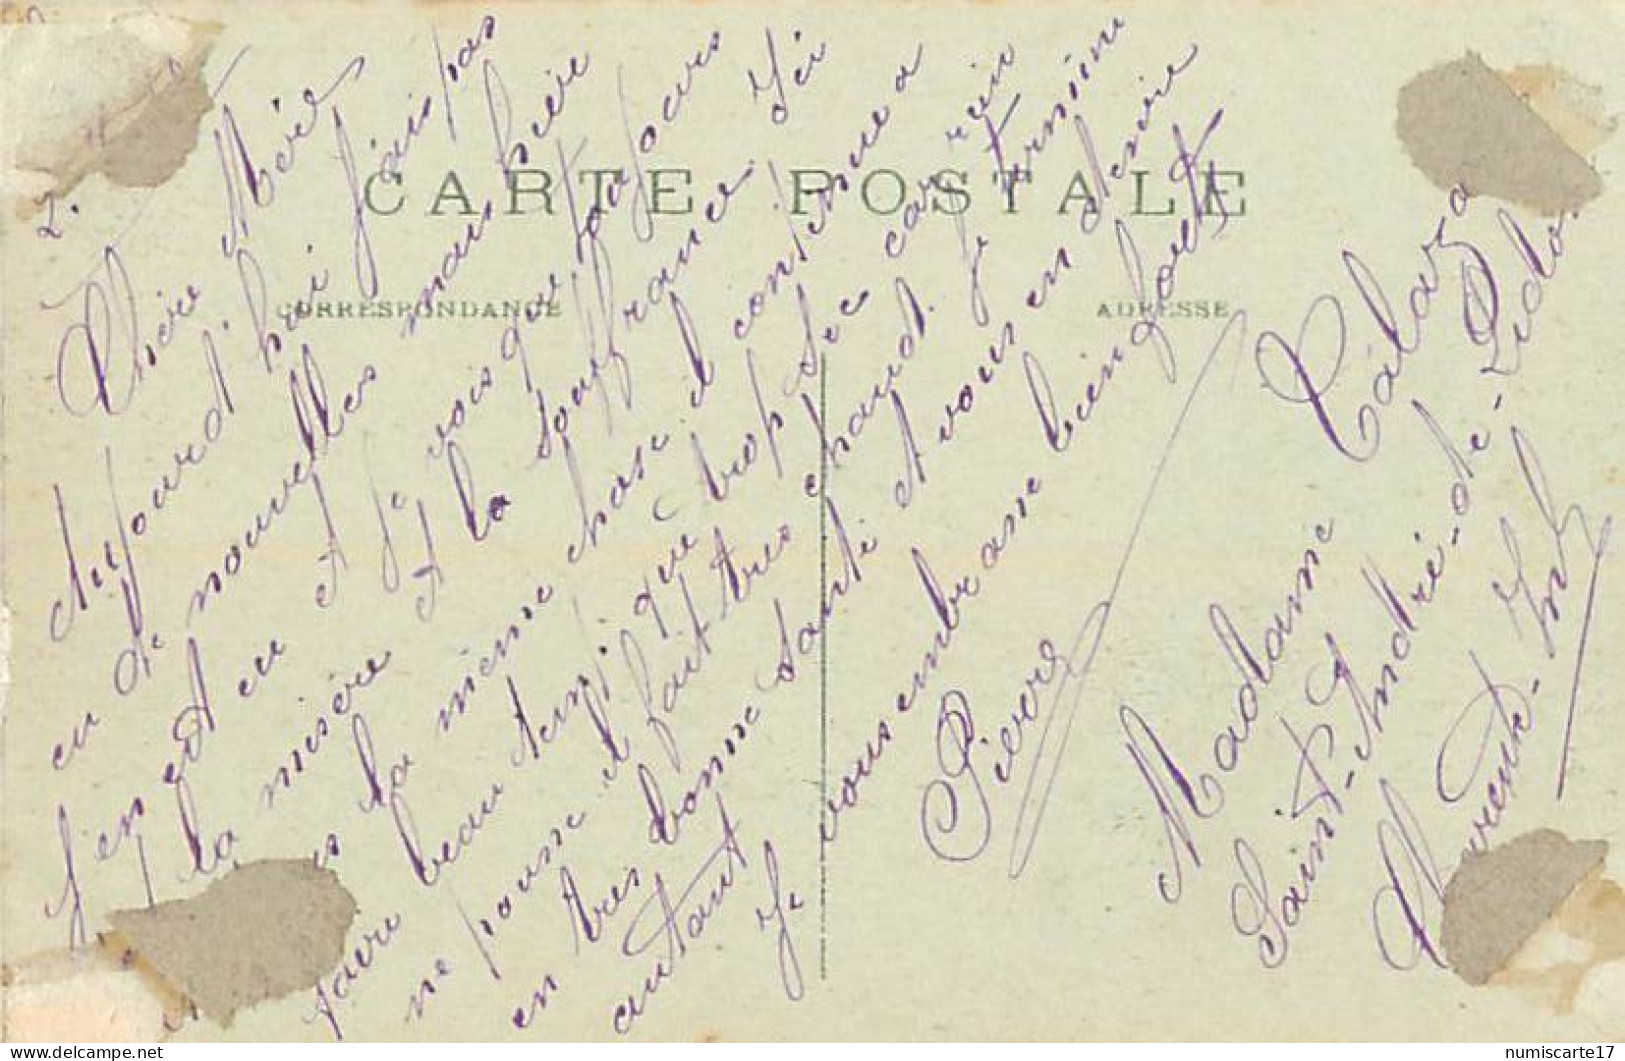 CARTE POSTALE
CORRESPONDANCE
ADRESSE
2.
Chère Mère
Aujourd'hui j'ai pas
eu de nouvelles mais hier
j'en est eu et je vous que toujours
la misère et la souffrance Ici
la mienne chose il continue a
faire beau temp que trop sec car rien
ne pousse il fait très chaud. Je termine
en très bonne santé et vous en désire
autant
Je vous embrasse bien fort
Pierre
Madame Calaza
Saint-André-de-Lidon
Charente-Inf
numiscarte17